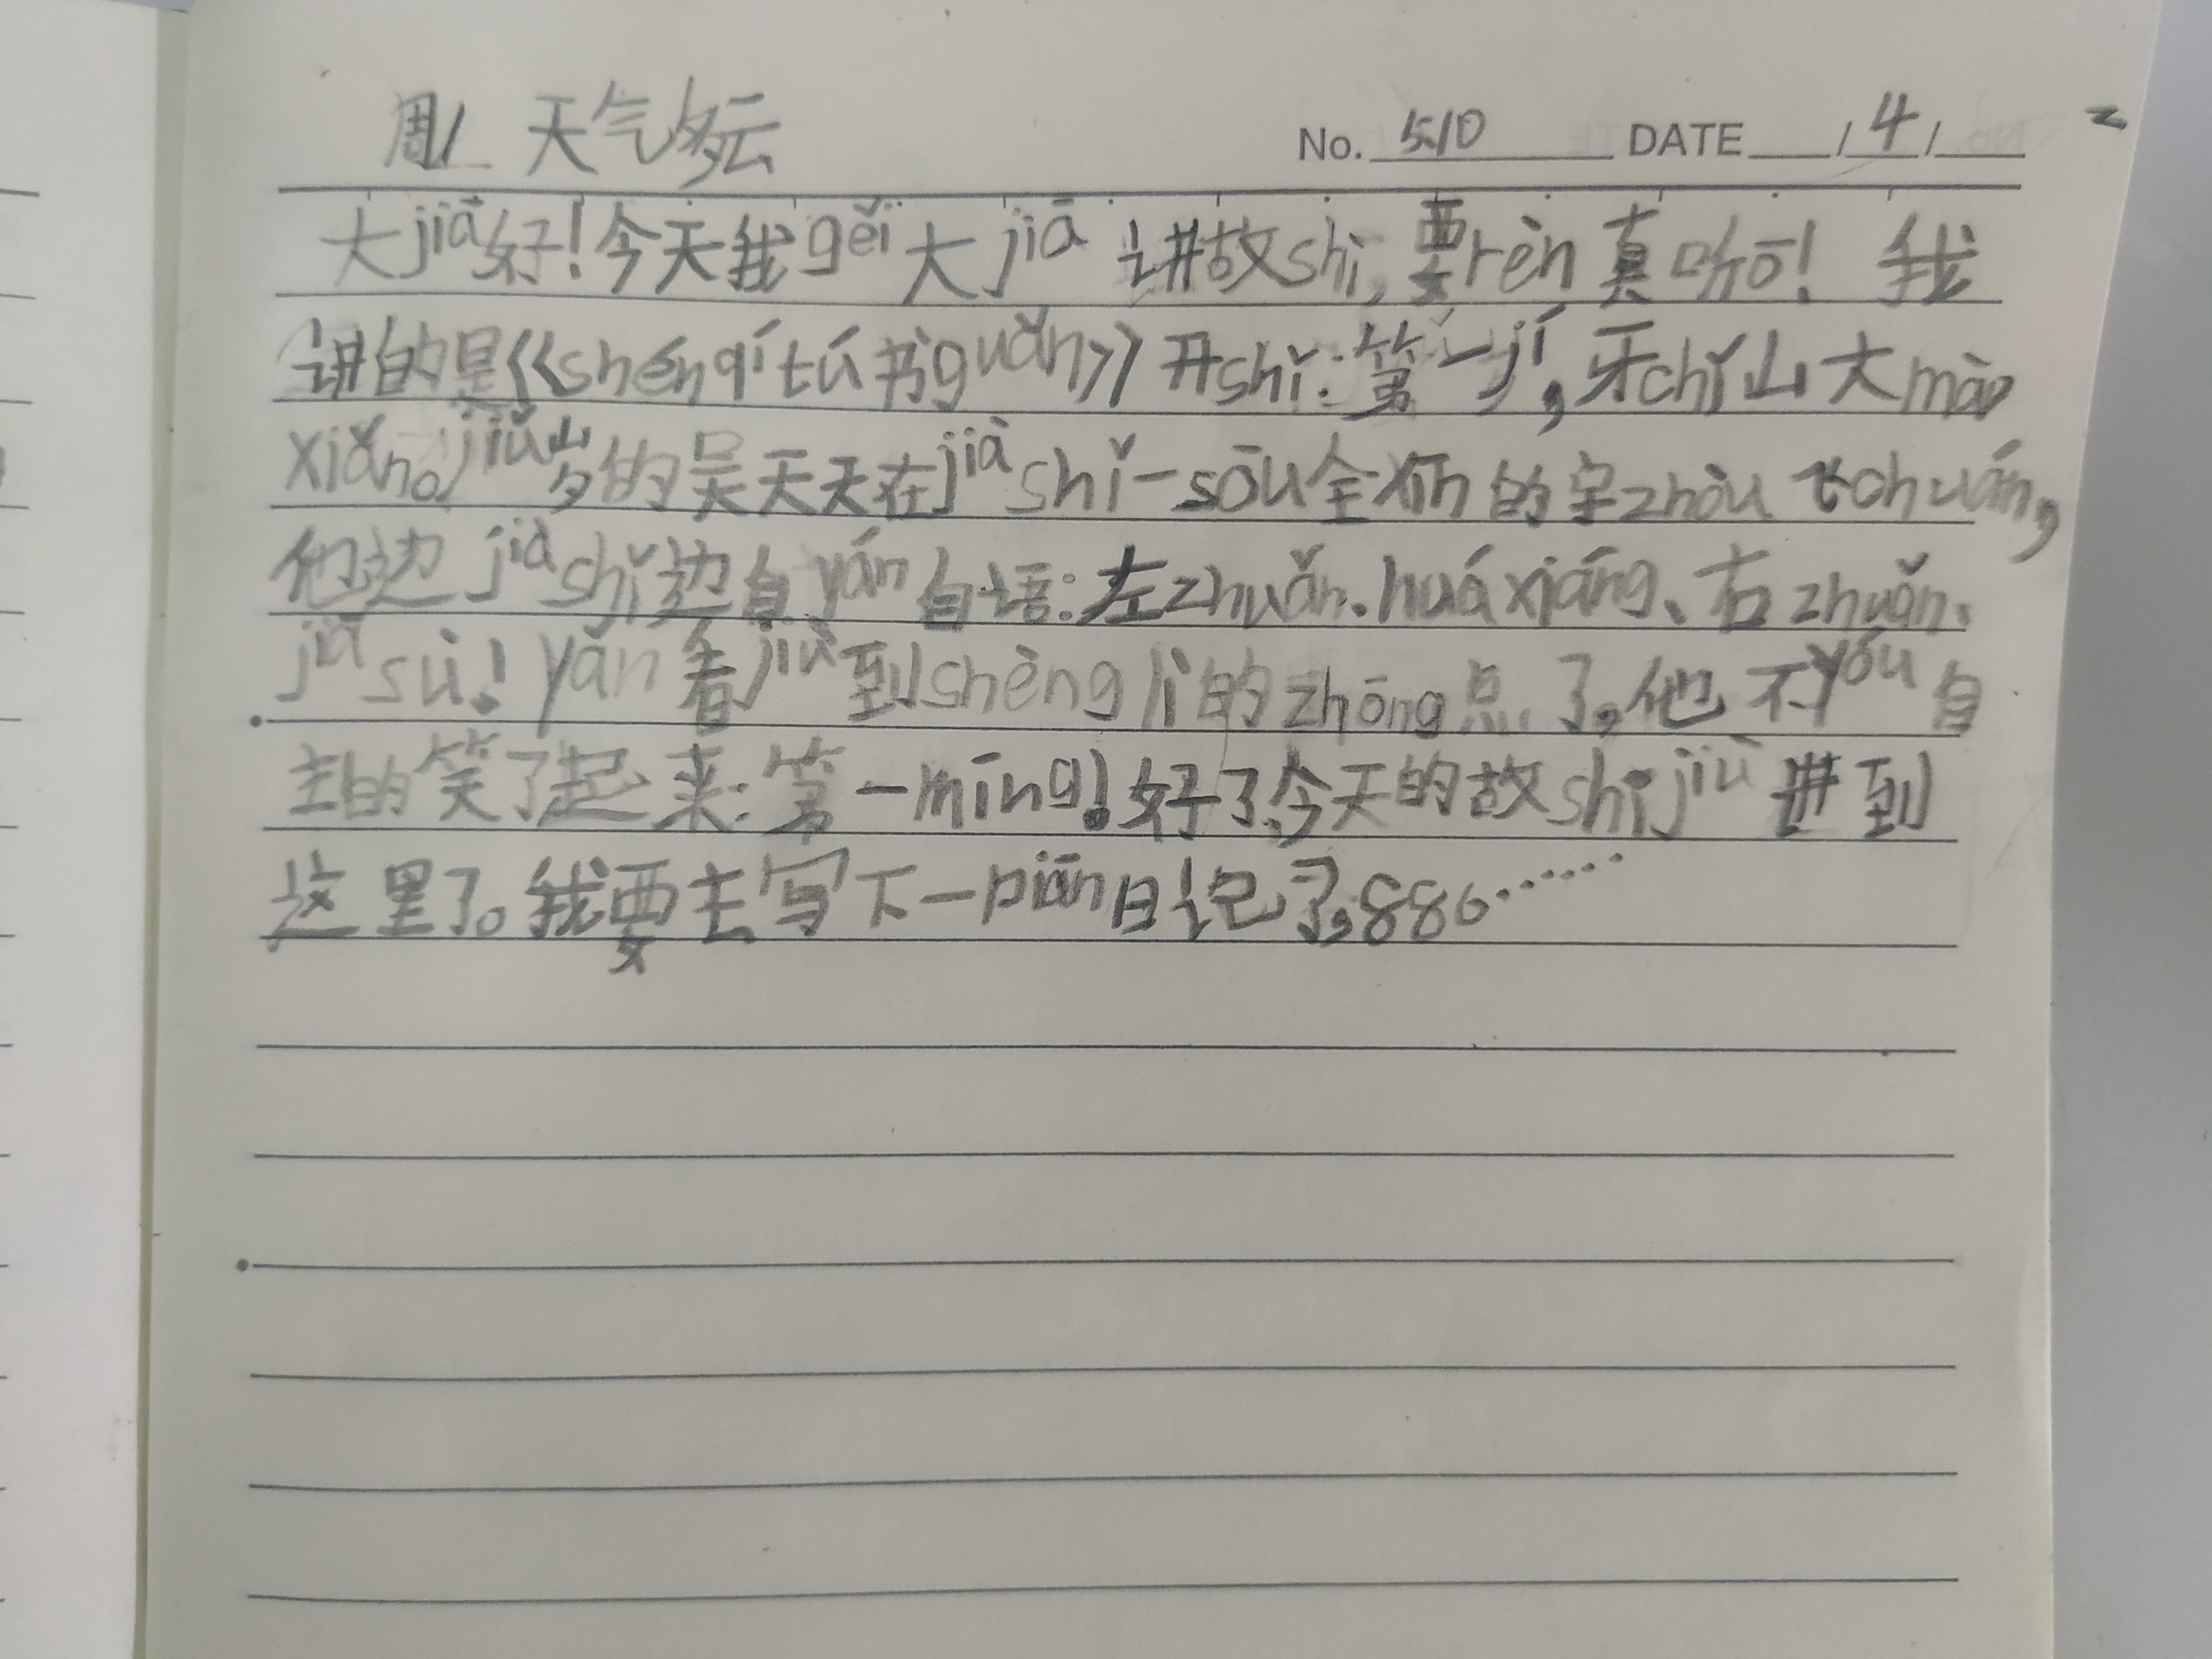 周1 天气多云 No. 5.10 DATE / 4 /
大jiā好!今天我gěi大jiā讲故shi,要rèn真听ō! 我
讲的是《shénqí tú书guǎn》开shǐ:第一jí,牙chǐ山大mào
xiǎn。jiǔ岁的吴天天在jià shǐ一sōu全xīn的宇zhòu飞chuán,
他边jià shǐ边自yán自语:左zhuǎn、huá xiáng、右zhuǎn、
jiā sù!yǎn看jiù到shèng lì的zhōng点了,他不yóu自
主的笑了起来:第一míng!好了今天的故shi jiù讲到
这里了。我要去写下一piān日记了,886……